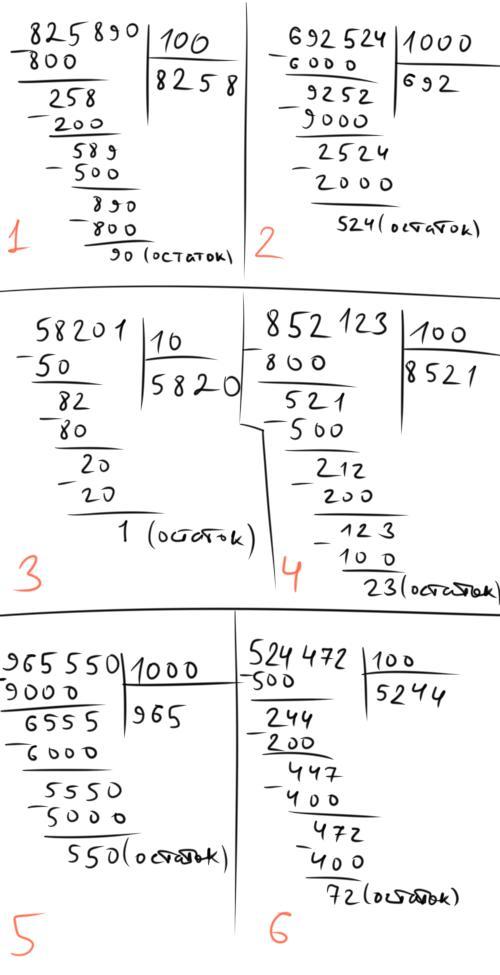 825890 100
- 800 8258
258
- 200
589
- 500
890
- 800
90 (остаток)
1
692524 1000
- 6000 692
9252
- 9000
2524
- 2000
524 (остаток)
2
58201 10
- 50 5820
82
- 80
20
- 20
1 (остаток)
3
852123 100
- 800 8521
521
- 500
212
- 200
123
- 100
23 (остаток)
4
965550 1000
- 9000 965
6555
- 6000
5550
- 5000
550 (остаток)
5
524472 100
- 500 5244
244
- 200
447
- 400
472
- 400
72 (остаток)
6